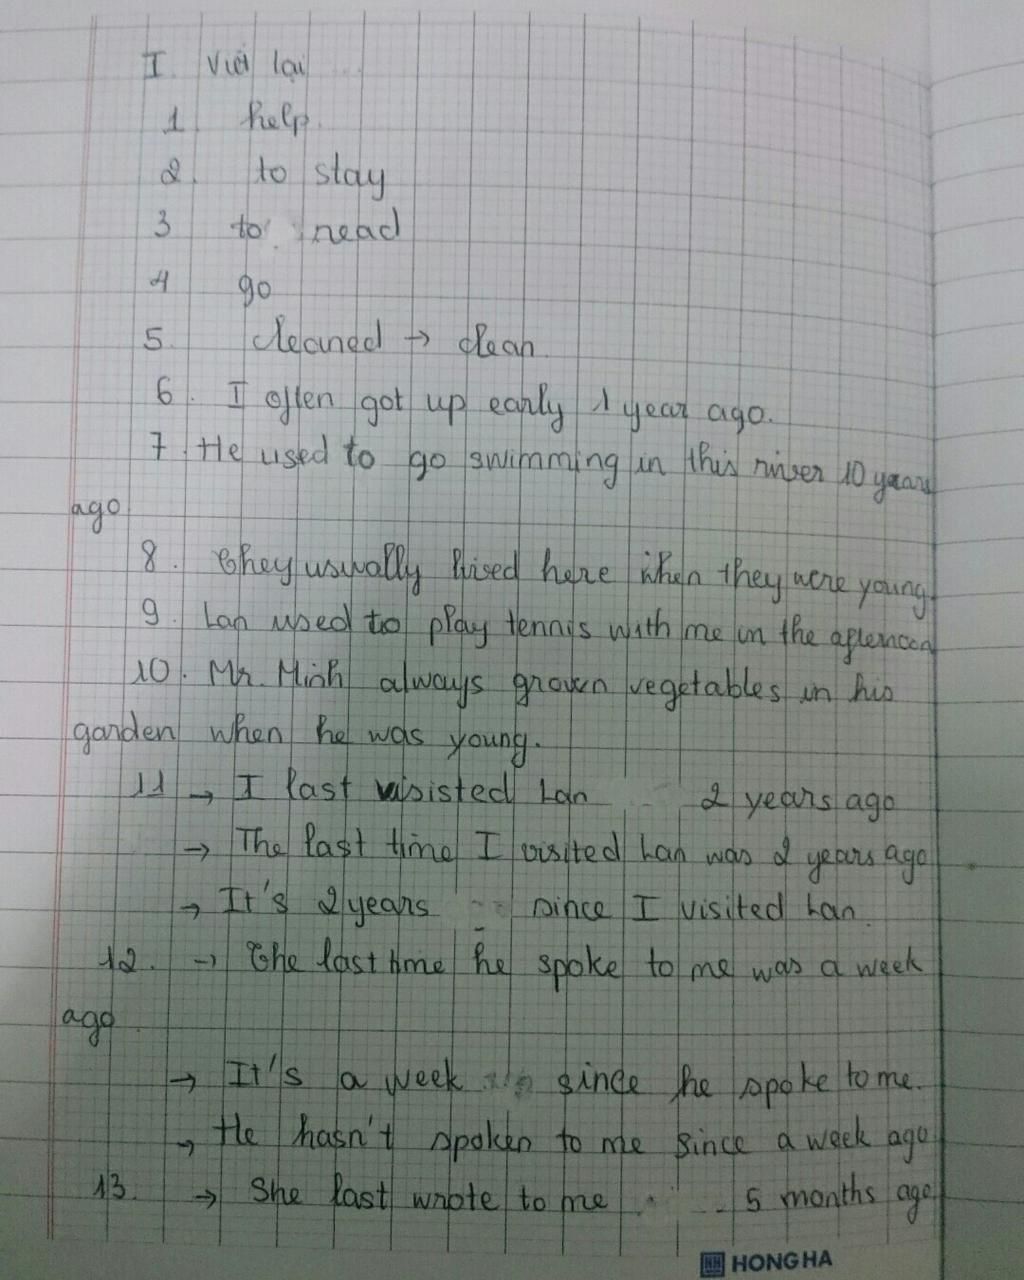 I Viết lại
1 help.
2. to stay
3 to read
4 go
5. cleaned → clean.
6. I often got up early 1 year ago.
7. He used to go swimming in this river 10 years
ago
8. They usually lived here when they were young.
9. Lan used to play tennis with me in the afternoon
10. Mr. Minh always grown vegetables in his
garden when he was young.
11 → I last visisted Lan 2 years ago
→ The last time I visited Lan was 2 years ago
→ It's 2 years since I visited Lan.
12. → The last time he spoke to me was a week
ago
→ It's a week since he spoke to me.
→ He hasn't spoken to me since a week ago
13. → She last wrote to me 5 months ago
HH HONG HA